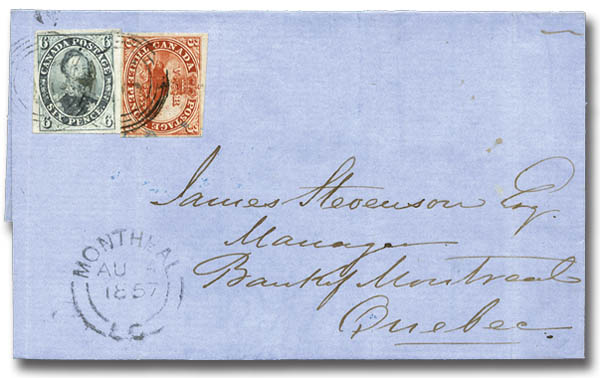 CANADA POSTAGE
SIX PENCE
6 6 6 6
CANADA POSTAGE
THREE PENCE
3 3
James Stevenson Esq.
Manager
Bank of Montreal
Quebec.
MONTREAL
AU
1857
L.C